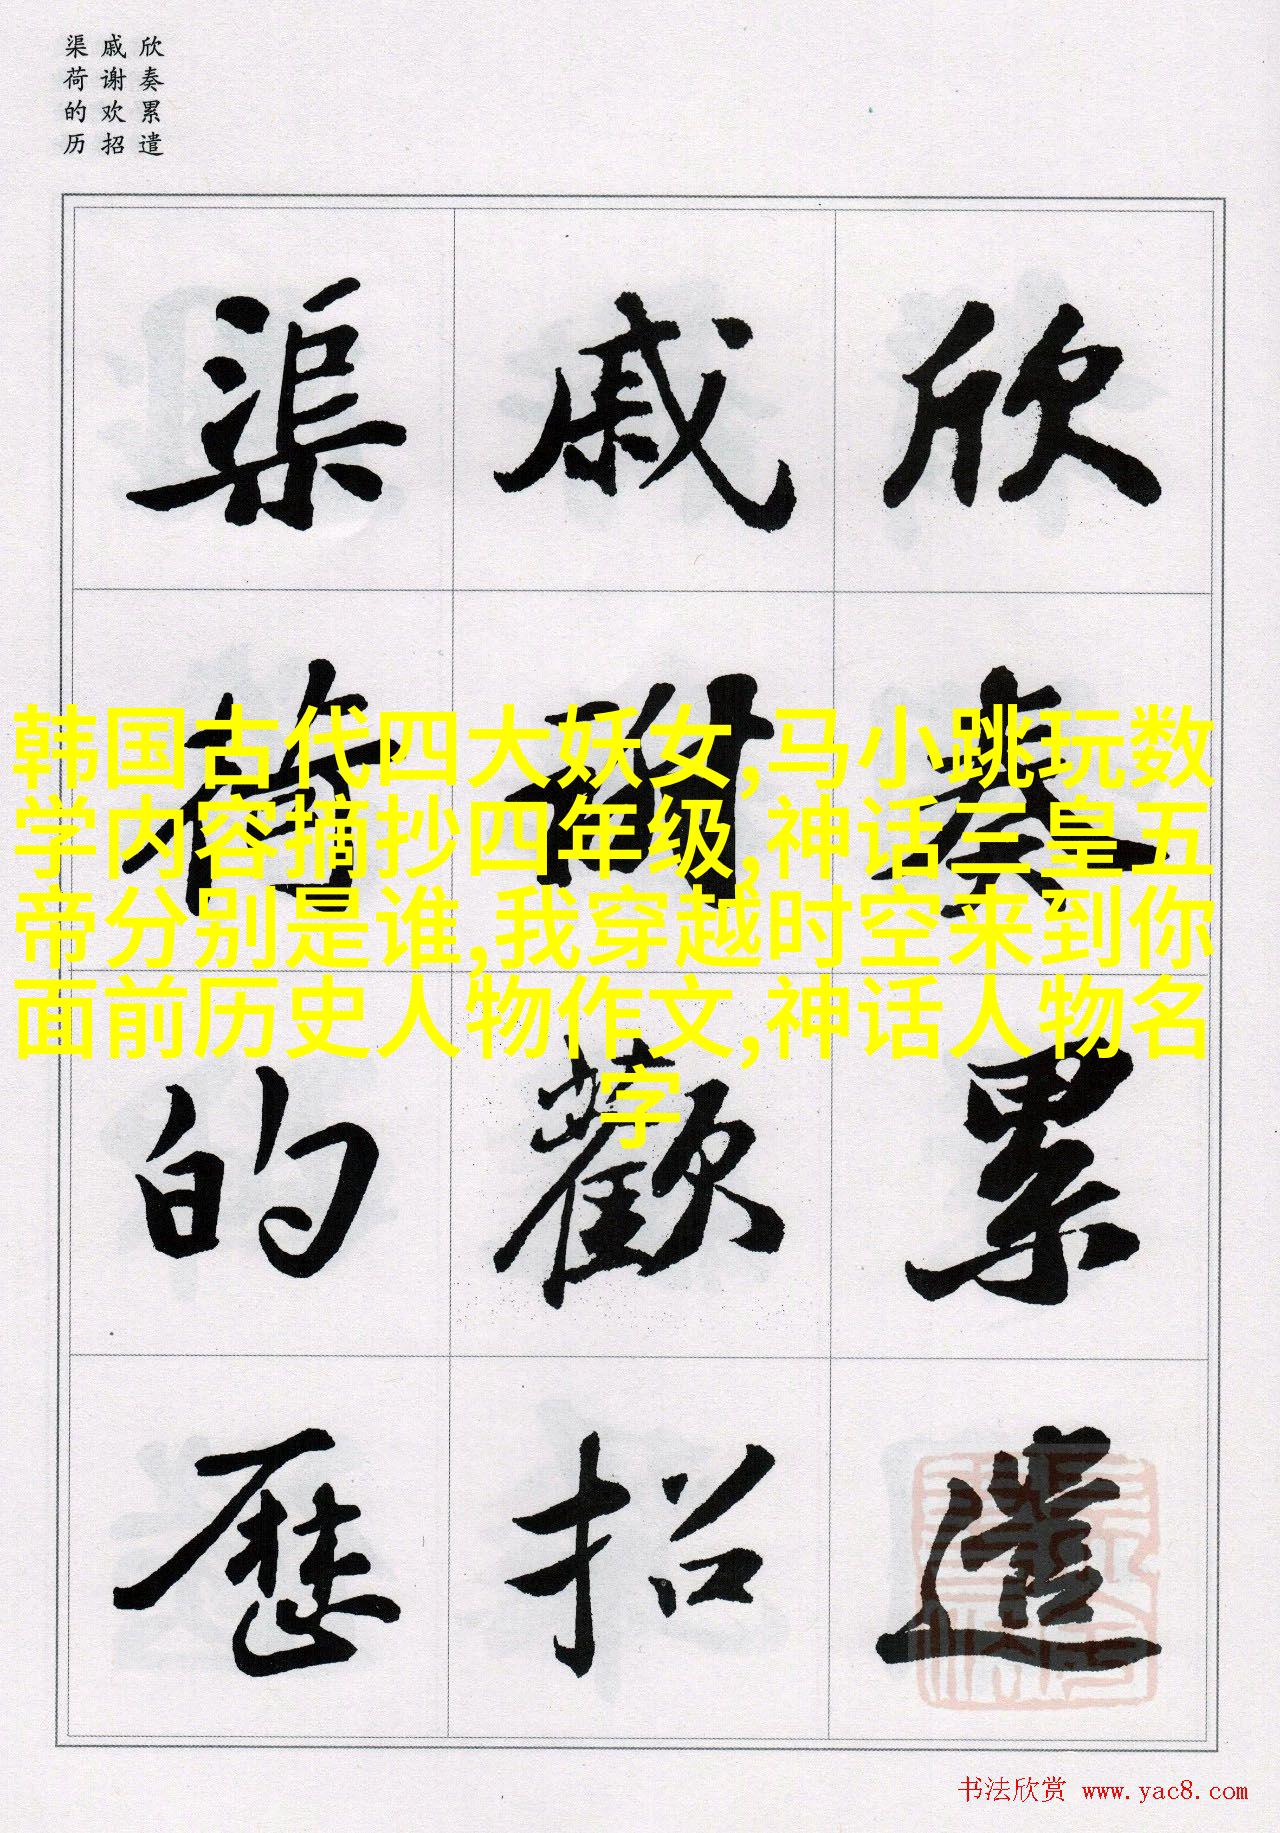 欣奏累遣
戚谢欢招
渠荷的历
欣奏累遣
戚謝歡招
渠荷的歷
韩国古代四大妖女,马小跳玩数
学内容摘抄四年级,神话三皇五
帝分别是谁,我穿越时空来到你
面前历史人物作文,神话人物名
字
书法欣赏 www.yac8.com